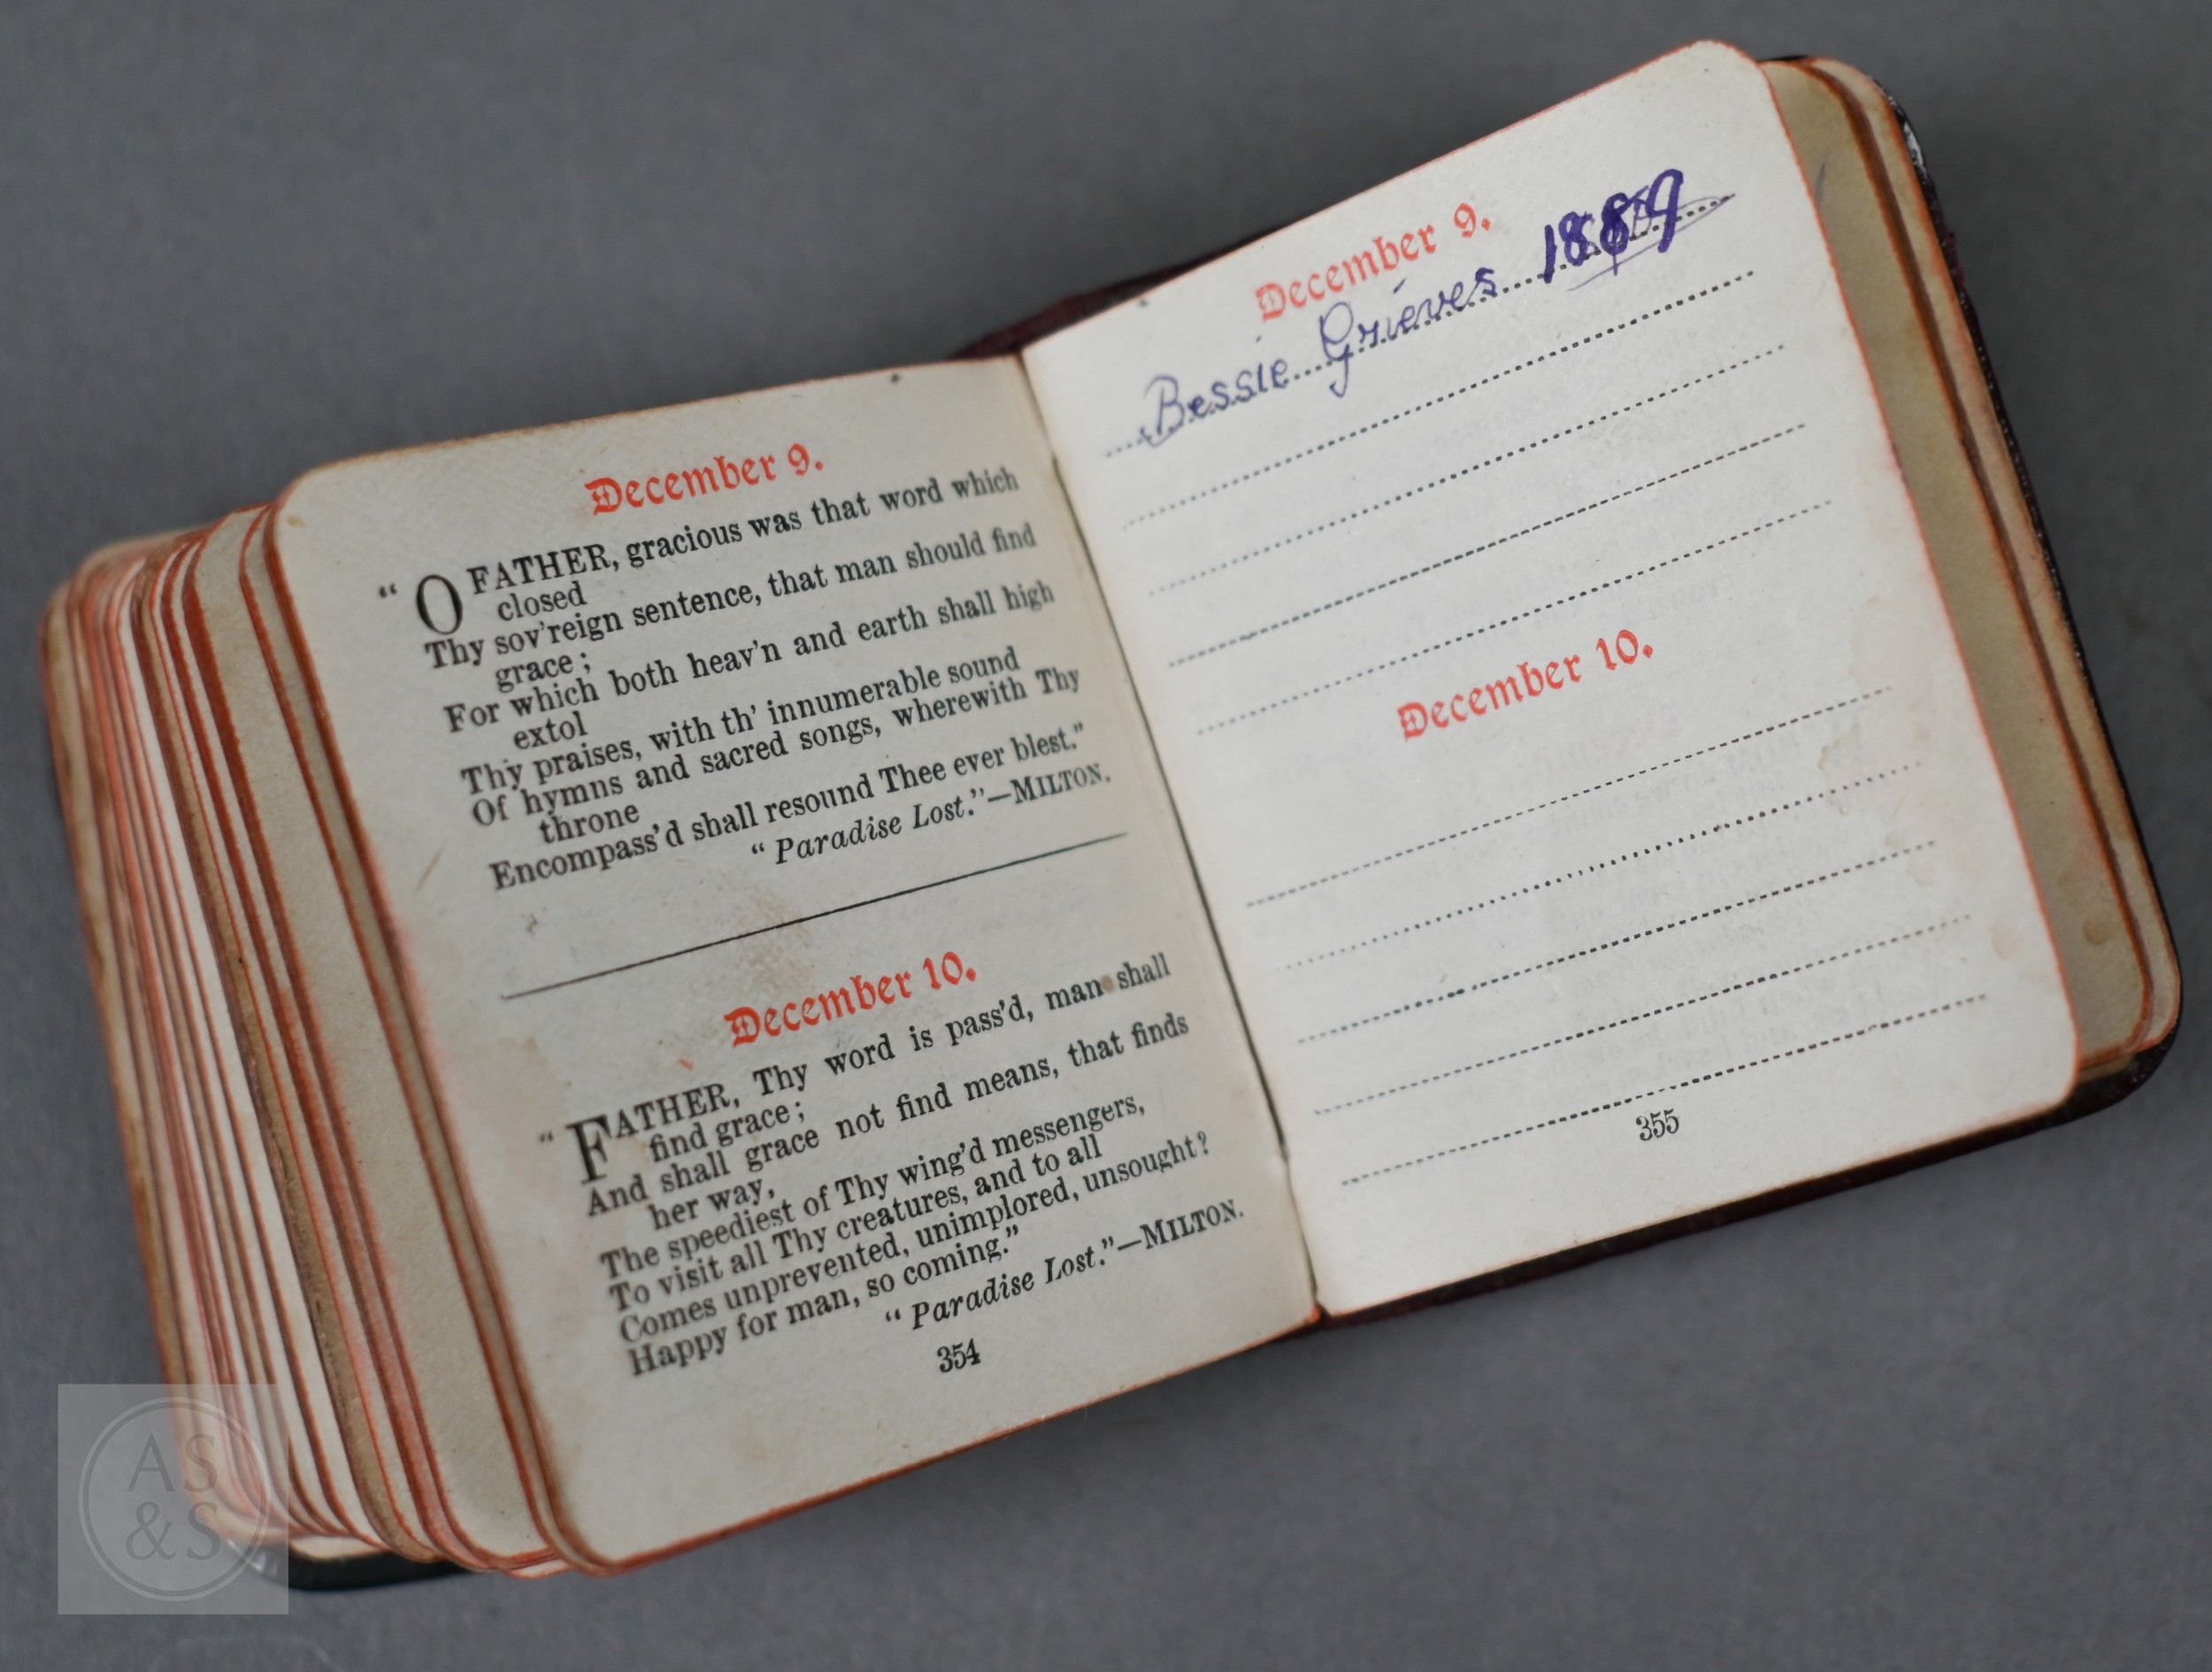 December 9.
“O FATHER, gracious was that word which
closed
Thy sov’reign sentence, that man should find
grace;
For which both heav’n and earth shall high
extol
Thy praises, with th’ innumerable sound
Of hymns and sacred songs, wherewith Thy
throne
Encompass’d shall resound Thee ever blest.”
“Paradise Lost.”—MILTON.
December 10.
“FATHER, Thy word is pass’d, man shall
find grace;
And shall grace not find means, that finds
her way,
The speediest of Thy wing’d messengers,
To visit all Thy creatures, and to all
Comes unprevented, unimplored, unsought?
Happy for man, so coming.”
“Paradise Lost.”—MILTON.
354
December 9.
Bessie Grieves 1889
December 10.
355
AS
&S